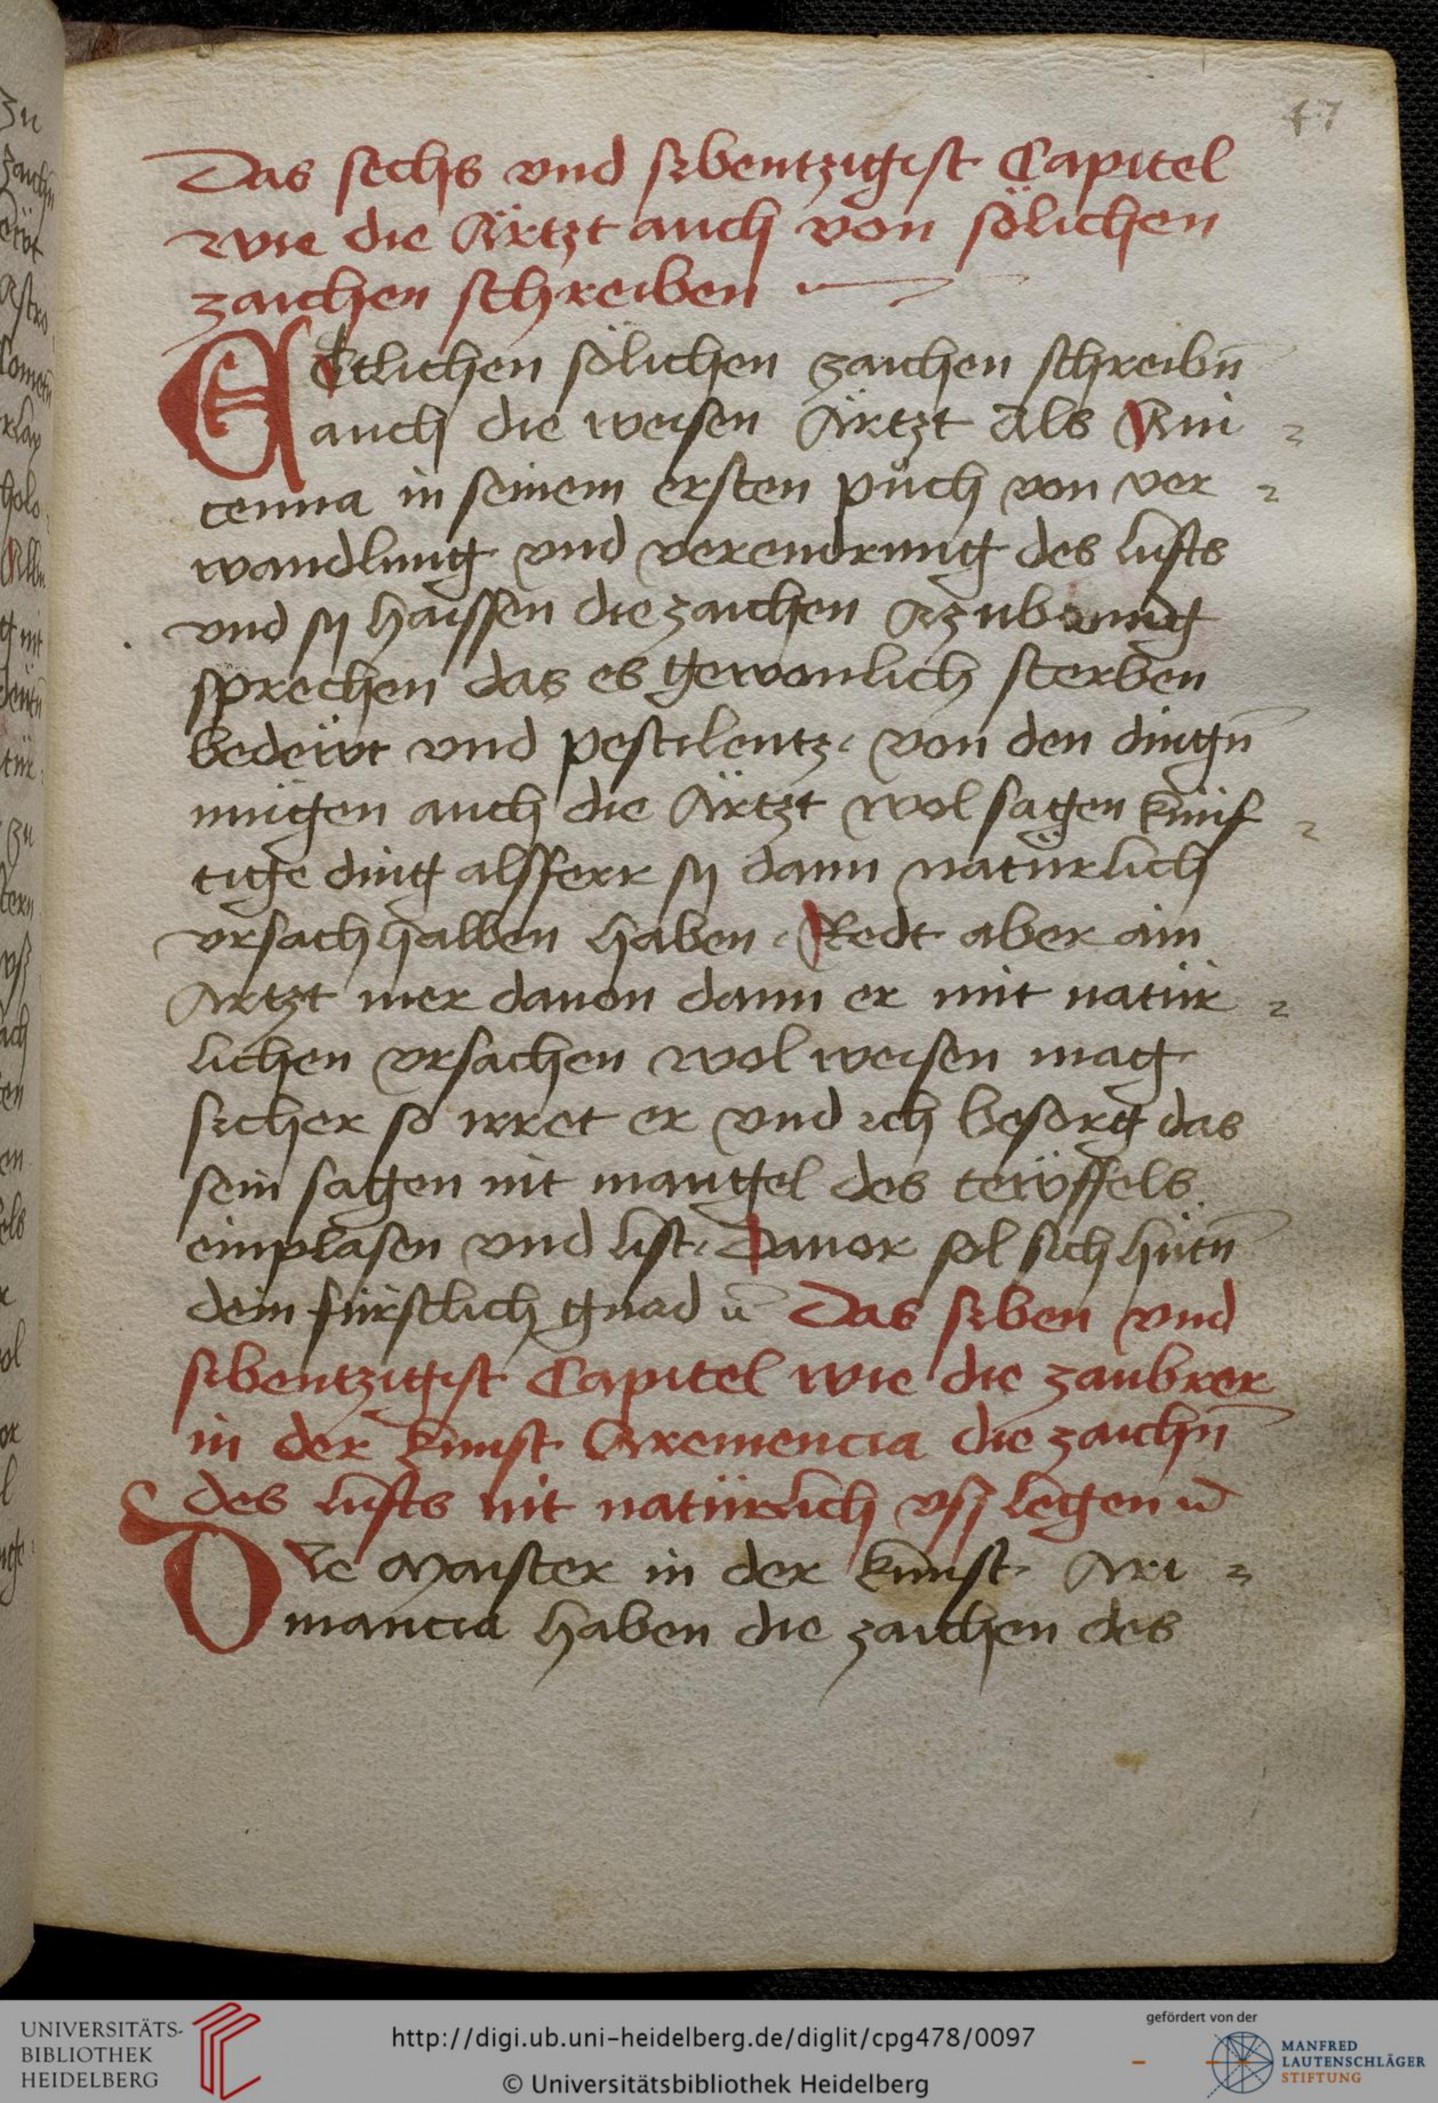 47
Das sechs vnd sibentzigist Capitel
wie die Ärtzt auch von sölichen
zaichen schreiben
Etlichen sölichen zaichen schreibn̄
auch die weisen Ärtzt Als Aui
cenna in seinem ersten půch von ver
wandlung vnd verendrung des lufts
vnd sy haissen die zaichen
sprechen das es gewonlich sterben
bedeüt vnd pestilentz. von den dingn̄
mügen auch die Ärtzt wol sagen künf
tige ding alsferr sy dann natürlich
vrsach halben haben. Redt aber ain
Artzt mer dauon dann er mit natür
lichen vrsachen wol weisen mag
sicher so irret er vnd ich besorg das
sein sagen nit mangel des teüffels
einplasen vnd list. Dauor sol sich hütn̄
dein fürstlich gnad Das siben vnd
sibentzigist Capitel wie die zaubrer
in der kunst Aremencia die zaichn̄
des lufts nit natürlich vß legen
Die Maister in der kunst Ari
mancia haben die zaichen des
UNIVERSITÄTS-
BIBLIOTHEK
HEIDELBERG
http://digi.ub.uni-heidelberg.de/diglit/cpg478/0097
© Universitätsbibliothek Heidelberg
gefördert von der
MANFRED
LAUTENSCHLÄGER
STIFTUNG